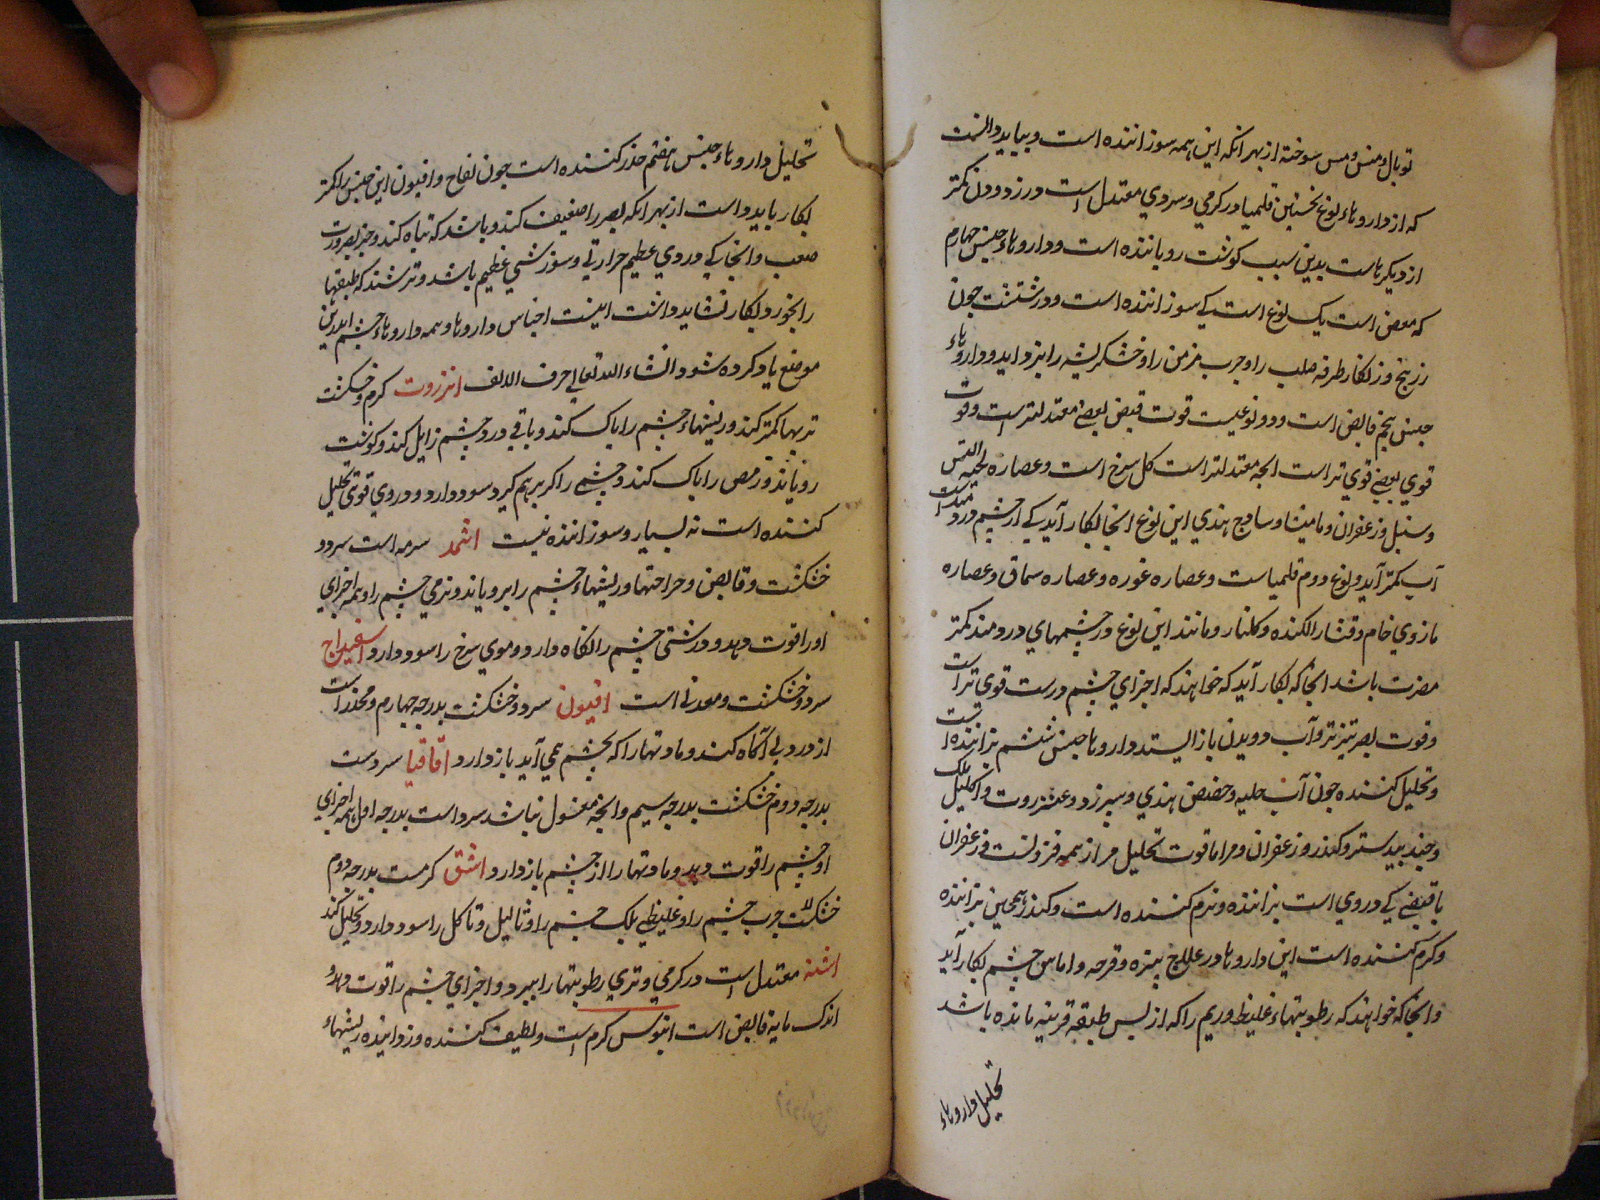 توبال و مس و مس سوخته از بهر آنکه این همه سوزاننده است و بباید دانست
که از داروهاء نوع نخستین قلمیا در کرمي و سردي معتدل است و در زدودن کمتر
از دیکرهاست بدین سبب کوشت رویاننده است و داروهاء جنس چهارم
که معفن است یک نوع است کي سوزاننده است و درشتست چون
زرنیخ و زنکار طرفه صلب را و جرب مزمن را و خشکریشه را بزداید و داروهاء
جنس پنجم قابض است و دو نوعیست قوت قبض بعضي معتدلتر است و قوت
قوي بعضي قوي تر است انچه معتدلتر است کل سرخ است و عصاره لحیه التیس
و سنبل و زعفران و مامیثا و ساذج هندي این نوع انجا بکار آید کي از چشم
آب کمتر آید و نوع دوم قلمیاست و عصاره غوره و عصاره سماق و عصاره
مازوي خام و قشار الکنده و کلنار و مانند این نوع در چشمهاي دردمند کمتر
مضرت باشد انجا که بکار آید که خواهند که اجزاي چشم درست قوي تر است
و قوت بصر تیزتر و آب دویدن باز ایستد داروها جنس ششم پزاننده است
و تحلیل کننده چون آب حلبه و حضض هندي و عنزروت و اکلیل ملک
و جندبیدستر و کندر و زعفران و مر اما قوت تحلیل مر از همه فزونست و زعفران
با قبضي کي دروي است پزاننده و نرم کننده است و کندر همچنین پزاننده
و کرم کننده است این داروها در علاج بثره و قرحه و اماس چشم بکار آید
و انجا که خواهند که رطوبتهاء غلیظ و ریم را که از پس طبقه قرنیه مانده باشد
تحلیل داروهاء
تحلیل داروهاء جنس هفتم خدر کننده است چون لفاح و افیون این جنس را کمتر
بکار باید داشت از بهر انکه بصر را ضعیف کند و باشد که تباه کند و جز بضرورت
صعب و انجا کي دردي عظیم حرارتي و سوزشي عظیم باشد و ترسند که طبقها
را بخورد بکار نشاید داشت اینست اجناس داروها و همه داروهاء چشم اندرین
موضع یاد کرده شود انشاء الله تعالي حرف الالف انزروت کرم و خشکست
تریها کمتر کند و ریشهاء چشم را پاک کند و باقي درد چشم زایل کند و کوشت
رویاند و رمص را پاک کند و چشمي را کي برهم کیرد سود دارد و دروي قوتي تحلیل
کننده است نه بسیار و سوزاننده نیست اثمد سرمه است سرد و
خشکست و قابض و جراحتها و ریشهاء چشم را برویاند و نرمي چشم را و همه اجزاي
او را قوت دهد و درستي چشم را نکاه دارد و موي سرخ را سود دارد اسفیداج
سرد و خشکست و معدني است افیون سرد و خشکست بدرجه چهارم و مخدر است
از درد بي آکاه کند و مادتها را که بچشم همي آید باز دارد اقاقیا سردست
بدرجه دوم خشکست بدرجه سیم و انچه مغسول نباشد سرد است بدرجه اول همه اجزاي
او چشم را قوت دهد و مادتها را از چشم باز دارد اشق کرمست بدرجه دوم
خشکست جرب چشم را و غلیظي پلک چشم را و ثالیل و تاکل را سود دارد و تحلیل کند
اشنه معتدل است در کرمي و تري رطوبتها را ببرد و اجزاي چشم را قوت دهد و
اندک مایه قابض است ابنوس کرم است و لطیف کننده و زداینده ریشهاء